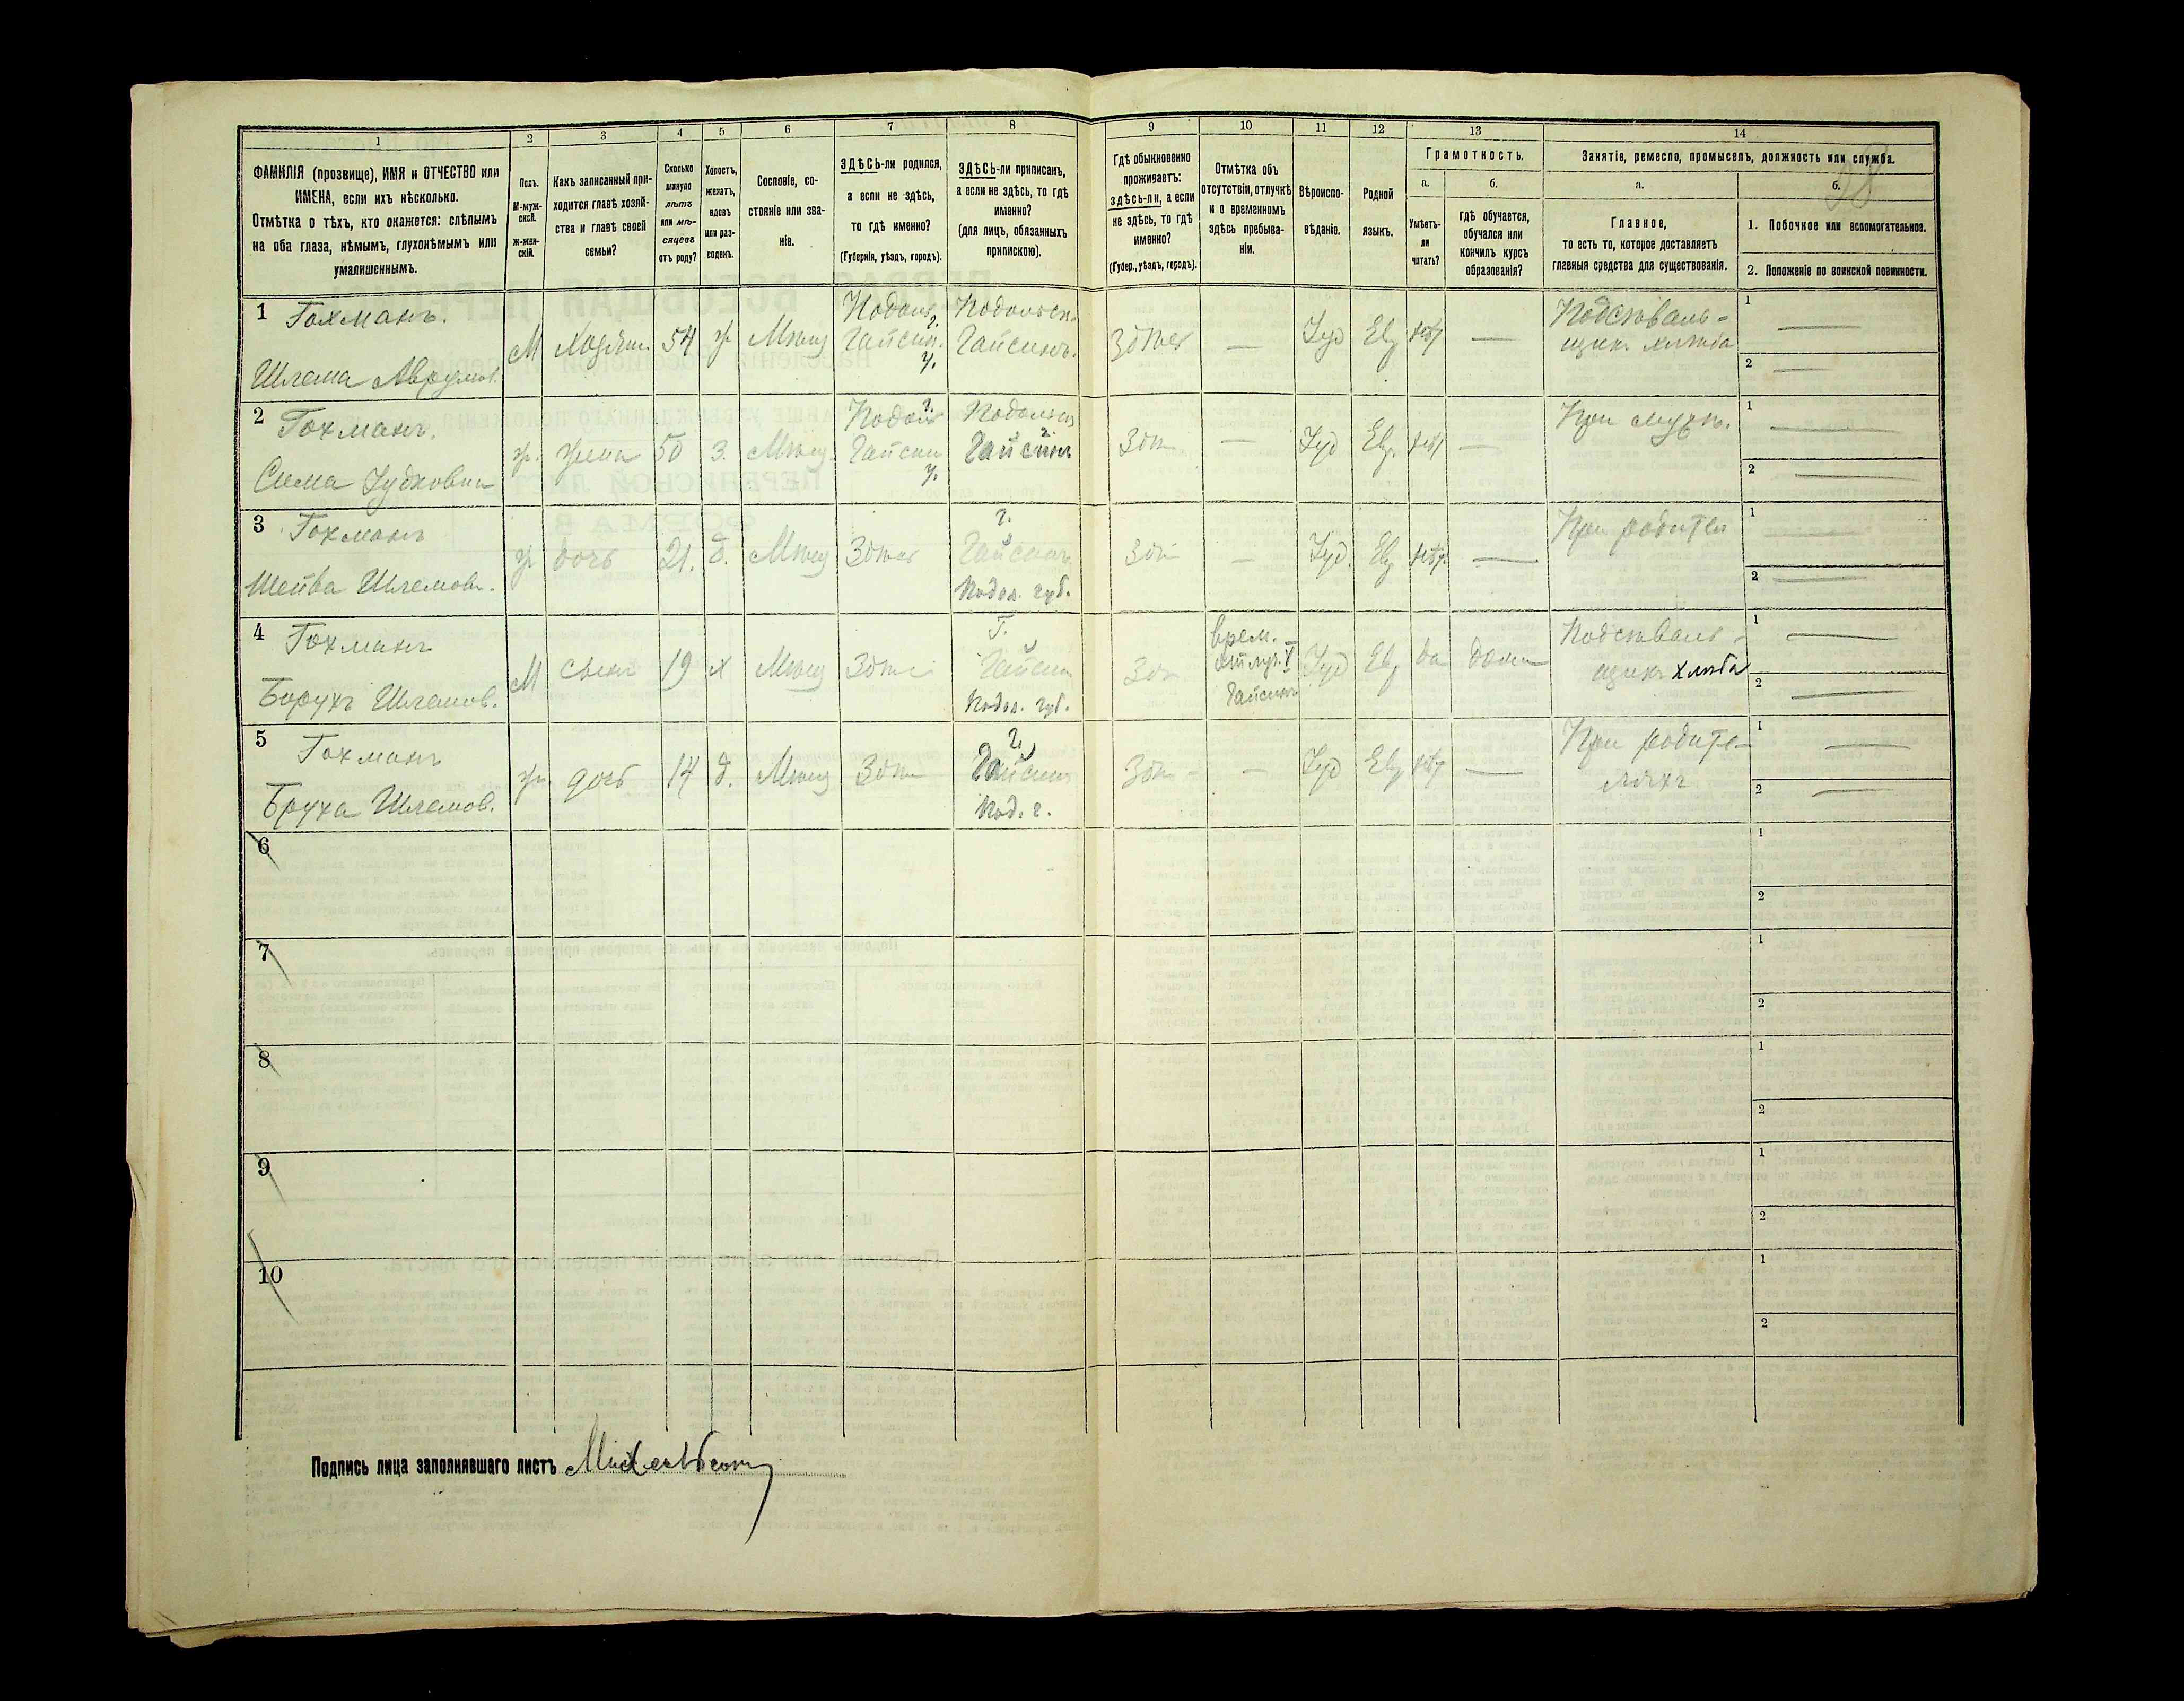 1 2 3 4 5 6 7 8 9 10 11 12 13 14
ФАМИЛІЯ (прозвище), ИМЯ и ОТЧЕСТВО или
ИМЕНА, если ихъ нѣсколько.
Отмѣтка о тѣхъ, кто окажется: слѣпымъ
на оба глаза, нѣмымъ, глухонѣмымъ или
умалишеннымъ.
Полъ.
М-муж-
ской.
ж-жен-
скій.
Какъ записанный при-
ходится главѣ хозяй-
ства и главѣ своей
семьи?
Сколько
минуло
лѣтъ
или мѣ-
сяцевъ
отъ роду?
Холостъ,
женатъ,
вдовъ
или раз-
веденъ.
Сословіе, со-
стояніе или зва-
ніе.
ЗДѢСЬ-ли родился,
а если не здѣсь,
то гдѣ именно?
(Губернія, уѣздъ, городъ).
ЗДѢСЬ-ли приписанъ,
а если не здѣсь, то гдѣ
именно?
(для лицъ, обязанныхъ
припискою).
Гдѣ обыкновенно
проживаетъ:
здѣсь-ли, а если
не здѣсь, то гдѣ
именно?
(Губер., уѣздъ, городъ).
Отмѣтка объ
отсутствіи, отлучкѣ
и о временномъ
здѣсь пребыва-
ніи.
Вѣроиспо-
вѣданіе.
Родной
языкъ.
Грамотность.
а.
Умѣетъ-
ли
читать?
б.
гдѣ обучается,
обучался или
кончилъ курсъ
образованія?
Занятіе, ремесло, промыселъ, должность или служба.
а.
Главное,
то есть то, которое доставляетъ
главныя средства для существованія.
б.
1. Побочное или вспомогательное.
2. Положеніе по воинской повинности.
1 Гохманъ.
Шлема Аврумов.
М Хозяин. 54 ж Мѣщ
Подоль. г.
Гайсин.
у.
Подольск.
Гайсинъ.
Здѣсь — Іуд Евр
—
Подсѣваль-
щикъ хлѣба
1 —
2 —
2 Гохманъ.
Сима Іудковна
ж. жена 50 З. Мѣщ.
Подол г.
Гайсин
у.
Подольск
г.
Гайсинъ
Здѣ — Іуд Евр.
—
При мужѣ.
1 —
2 —
3 Гохманъ
Шейва Шлемов.
ж дочь 21. д. Мѣщ Здѣсь
г.
Гайсинъ
Подол. губ.
Здѣ — Іуд. Евр
—
При родител
1 —
2 —
4 Гохманъ
Борухъ Шлемов.
М сынъ 19 х Мѣщ Здѣс
Г.
Гайсин
Подол. губ.
Здѣ
врем.
отлуч. V
Гайсинъ
Іуд Евр да дома
Подсѣваль-
щикъ хлѣба
1 —
2 —
5 Гохманъ
Бруха Шлемов.
ж. дочь 14 д. Мѣщ Здѣс
г.
Гайсин
Под. г.
Здѣ — — Іуд Евр
—
При родите-
ляхъ
1 —
2 —
6
1
2
7
1
2
8
1
2
9
1
2
10
1
2
Подпись лица заполнявшаго листъ